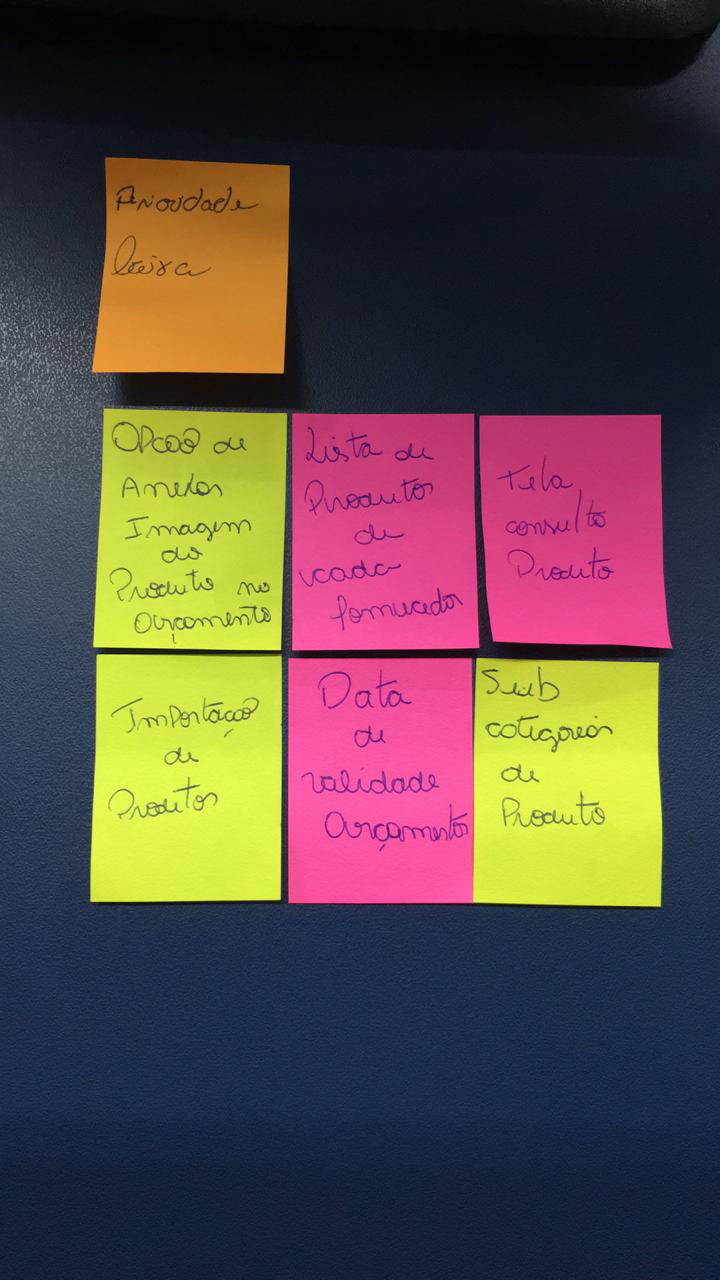 Prioridade
baixa
Opcão de
Anexar
Imagem
do
Produto no
Orçamento
Lista de
Produtos
de
cada
fornecedor
Tela
consulta
Produto
Importação
de
Produtos
Data
de
validade
Orçamentos
Sub
categorias
de
Produto